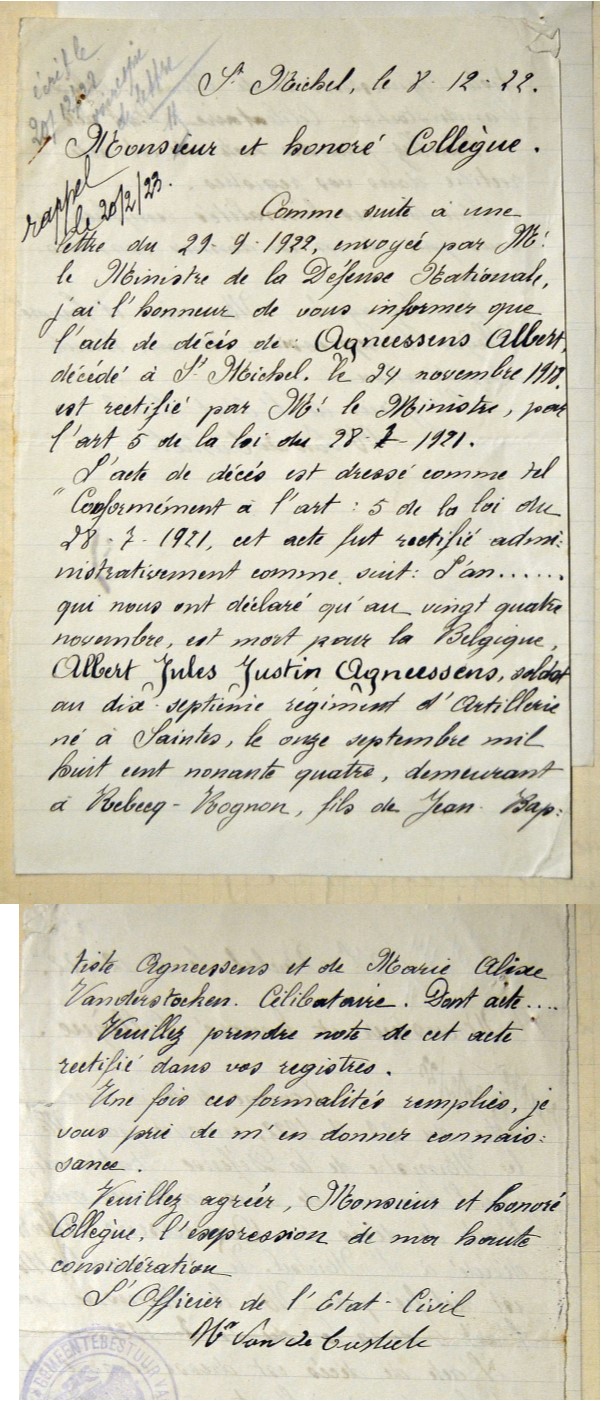 écrit le
20/12/22
de lettre
St Michel, le 8-12-22.
Monsieur et honoré Collègue.
rappel
le 20/2/23.
Comme suite à une
lettre du 29-9-1922, envoyée par Mr
le Ministre de la Défense Nationale,
j'ai l'honneur de vous informer que
l'acte de décès de: Agneessens Albert,
décédé à St Michel. le 24 novembre 1918.
est rectifié par Mr le Ministre, par
l'art 5 de la loi du 28-7-1921.
L'acte de décès est dressé comme tel
"Conformément à l'art: 5 de la loi du
28-7-1921, cet acte fut rectifié admi:
nistrativement comme suit: L'an......
qui nous ont déclaré qu'au vingt quatre
novembre, est mort pour la Belgique,
Albert Jules Justin Agneessens, soldat
au dix-septième régiment d'Artillerie
né à Saintes, le onze septembre mil
huit cent nonante quatre, demeurant
à Rebecq-Rognon, fils de Jean-Bap:
tiste Agneessens et de Marie Alixe
Vanderstocken. Célibataire. Dont acte....
Veuillez prendre note de cet acte
rectifié dans vos registres.
Une fois ces formalités remplies, je
vous prie de m'en donner connais:
sance.
Veuillez agréer, Monsieur et honoré
Collègue, l'expression de ma haute
considération
L'Officier de l'Etat-Civil
Van de
GEMEENTEBESTUUR VA